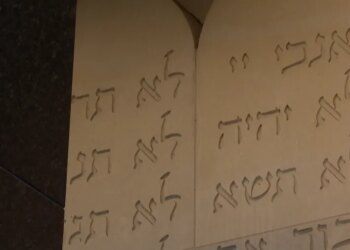 אנכי יי
לא יהיה
לא תשא
לא תר
לא תנ
לא תג